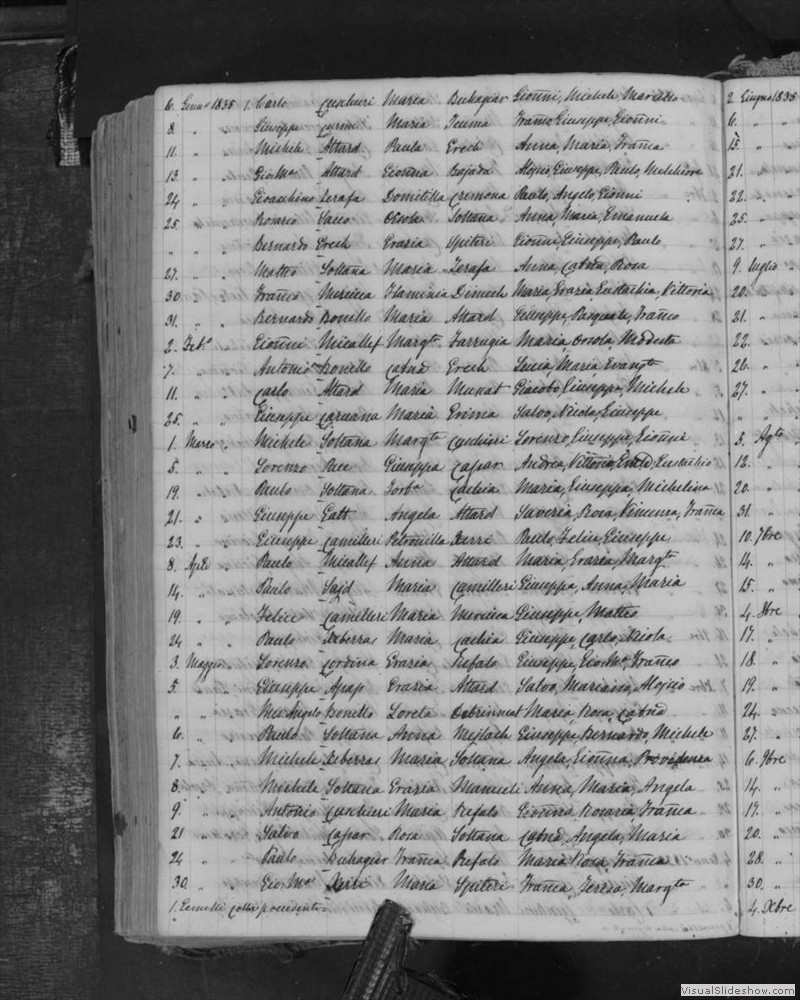 6. Genn° 1835 1. Carlo Cuschieri Maria Buhagiar Gionñi, Michele, Marcello
8. " " Giuseppe Curmi Maria Teuma Franc° Giuseppe, Gionñi
11. " " Michele Attard Paula Grech Anna, Maria, Franca
13. " " Gio Ma Attard Gionña Bajada Alojsio, Giuseppe, Paulo, Melchiorre
24 " " Gioacchino Zerafa Domitilla Cremona Paulo, Angelo, Gionni
25. " " Rosario Sacco Orsola Soltana Anna, Maria, Emanuela
" " " Bernardo Grech Grazia Spiteri Gionñi, Giuseppe, Paulo
27. " " Matteo Soltana Maria Zerafa Anna, Catña, Rosa
30 " " Franco Mercieca Flaminia Dimech Maria, Grazia, Eustachia, Vittoria
31. " " Bernardo Bonello Maria Attard Giuseppe, Pasquale, Franco
2. Feb° " Gionñi Micallef Margta Farrugia Maria, Orsola, Modesta
7. " " Antonio Bonello Catña Grech Lucia, Maria, Evangta
11. " " Carlo Attard Maria Muscat Giacobo, Giuseppe, Michele
25. " " Giuseppe Caruana Maria Grima Salvo, Nicola, Giuseppe
1. Marzo " Michele Soltana Margta Cuschieri Lorenzo, Giuseppe, Gionñi
5. " " Lorenzo Pace Giuseppa Capar Andrea, Vittorio, Eustachio
19. " " Paulo Soltana Cachia Maria, Giuseppa, Michelina
21. " " Giuseppe Gatt Angela Attard Saveria, Rosa, Vincenza, Franca
23. " " Giuseppe Camilleri Petronilla Xerri Paulo, Felice, Giuseppe
8. Aple " Paulo Micallef Anna Attard Maria, Grazia, Margta
14. " " Paulo Sajd Maria Camilleri Giuseppa, Anna, Maria
19. " " Felice Camilleri Maria Mercieca Giuseppe, Matteo
24 " " Paulo Xeberras Maria Cachia Giuseppe, Carlo, Nicola
3. Maggio " Lorenzo Cordina Grazia Refalo Giuseppe, Gio Ma, Franco
5. " " Giuseppe Apap Grazia Attard Salvo, Marianno, Alojsio
" " " Mic Angelo Bonello Loreta Maria, Rosa, Catña
6. " " Paulo Soltana Anna Mejlach Giuseppe, Bernardo, Michele
7. " " Michele Xeberras Maria Soltana Angela, Gionña, Providenza
8. " " Michele Soltana Grazia Manueli Anna, Maria, Angela
9. " " Antonio Cuschieri Maria Refalo Gionña, Rosaria, Franca
21 " " Salvo Capar Rosa Soltana Catña, Angela, Maria
24 " " Paulo Buhagiar Franca Refalo Maria, Rosa, Franca
30. " " Gio Ma Xiri Maria Spiteri Franca, Teresa, Margta
1. Gemelli colla precedente
2. Giugno 1835
6. " "
15. " "
21. " "
22. " "
25. " "
27. " "
9. Luglio
20. "
21. "
22. "
26. "
27. "
" "
5. Agto
12. "
20. "
31. "
10. 7bre
14. "
15. "
4. 8bre
17. "
18 "
19. "
24. "
27. "
6. 9bre
14. "
17. "
20. "
28. "
30. "
4. Xbre
VisualSlideshow.com